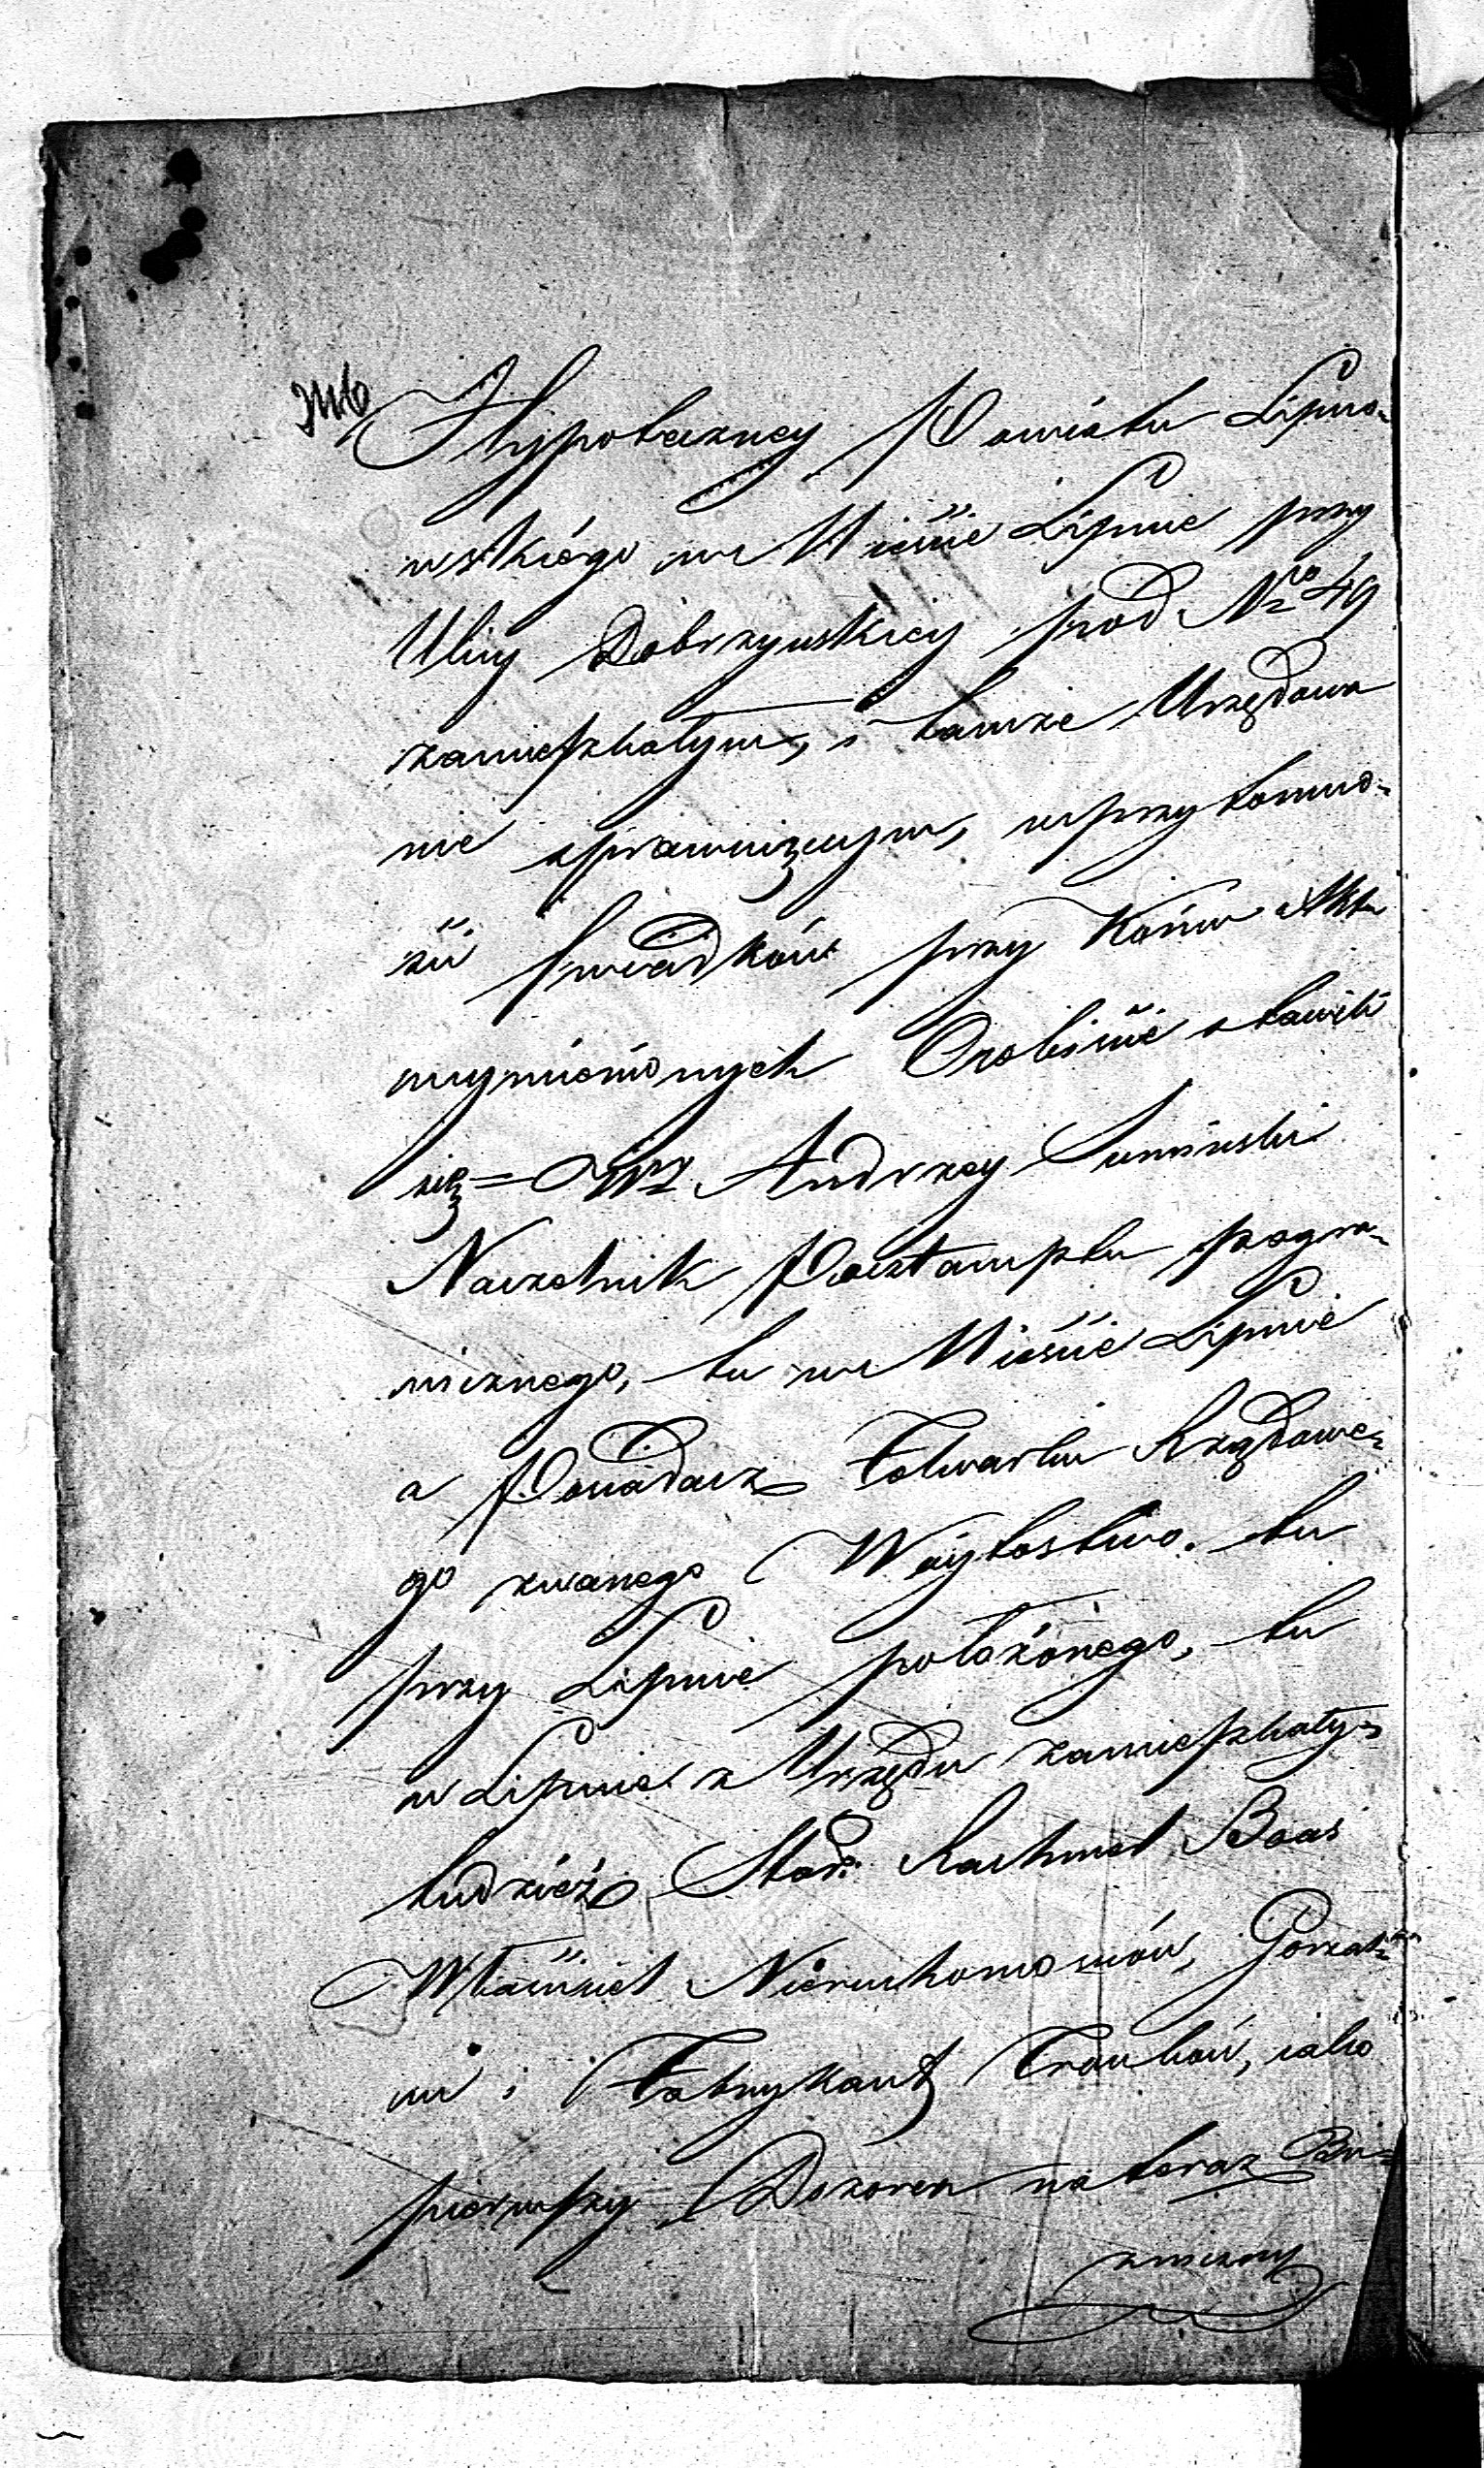 Hypoteczney Powiatu Lipno-
wskiégo w Mieście Lipnie przy
Ulicy Dobrzyńskiey pod Nro 49
zamieszkałym, i tamże Urzędow
nie sprawuiącym, w przytomno-
ści Swiadków przy Końcu Aktu
wymienionych Osobiście stawili
się = JWny Andrzey Sumiński
Naczelnik Pocztamptu pogra-
nicznego, tu w Mieście Lipnie
a Posiadacz Folwarku Rządowe-
go zwanego Wóytostwo. tu
przy Lipnie położonego, tu
w Lipnie z Urzędu zamieszkały-
tudzież Star. Rachmel Boas
Właściciel Nieruchomości, Gorzal-
ni i Fabrykant Trunków, iako
pierwszy Dozorca na teraz Bu-
zniczny